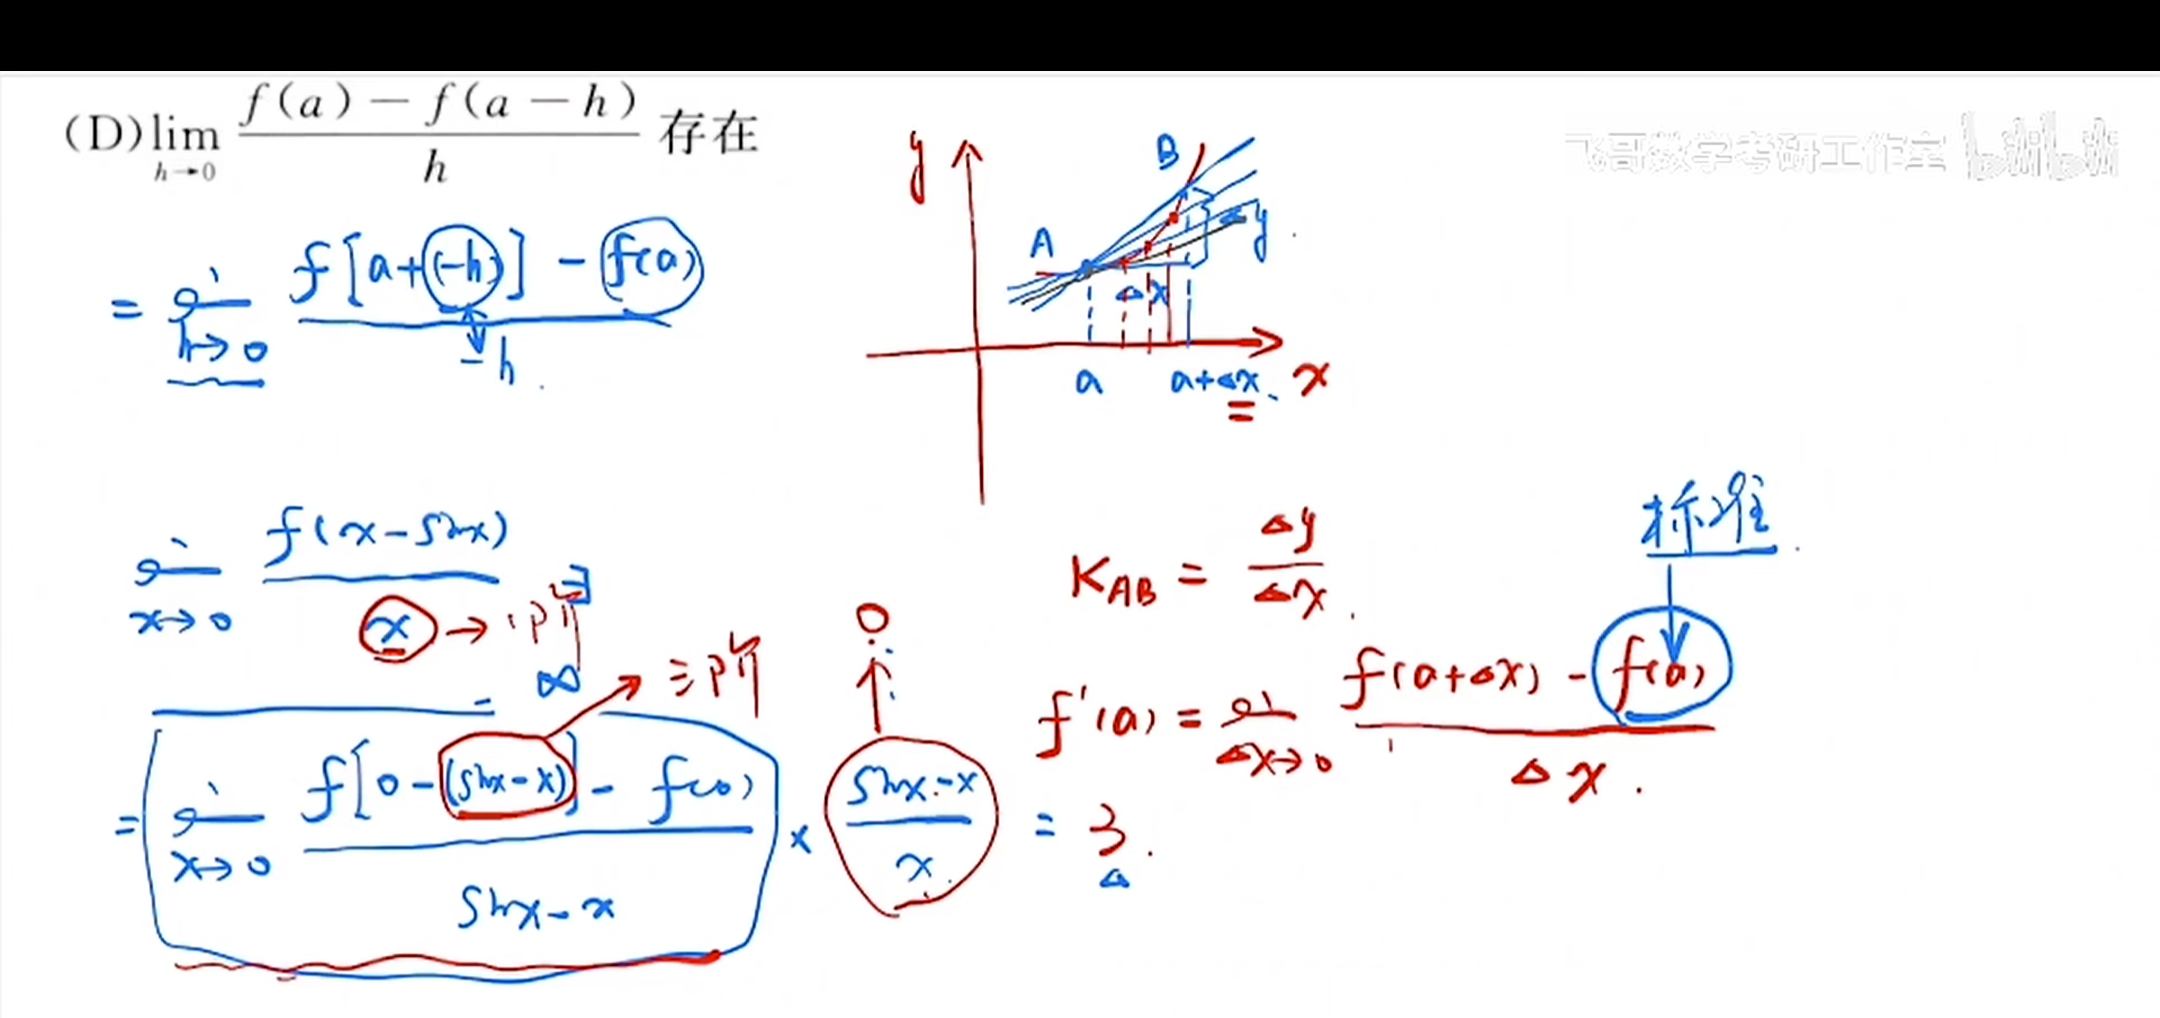 (D) lim_{h→0} \frac{f(a) - f(a-h)}{h} 存在
飞哥数学考研工作室 bilibili
= lim_{h→0} \frac{f[a+(-h)] - f(a)}{-h}.
y
B
A
Δy
Δx
a
a+Δx
x
lim_{x→0} \frac{f(x-sinx)}{x} → 1阶
∃
= ∞
三阶
0
= lim_{x→0} \frac{f[0-(sinx-x)] - f(0)}{sinx-x} × \frac{sinx-x}{x} = 3.
K_{AB} = \frac{Δy}{Δx}.
标准
f'(a) = lim_{Δx→0} \frac{f(a+Δx) - f(a)}{Δx}.